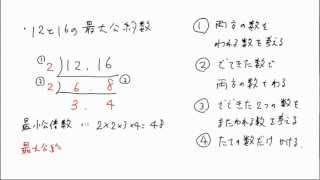 ・12と16の最大公約数
① 2) 12, 16
② 2) 6. 8
3. 4
最小公倍数 … 2×2×3×4=48
最大公
① 両方の数を
われる数を考える
② でてきた数で
両方の数をわる
③ でてきた2つの数を
またわれる数を考える
④ たての数だけかける。